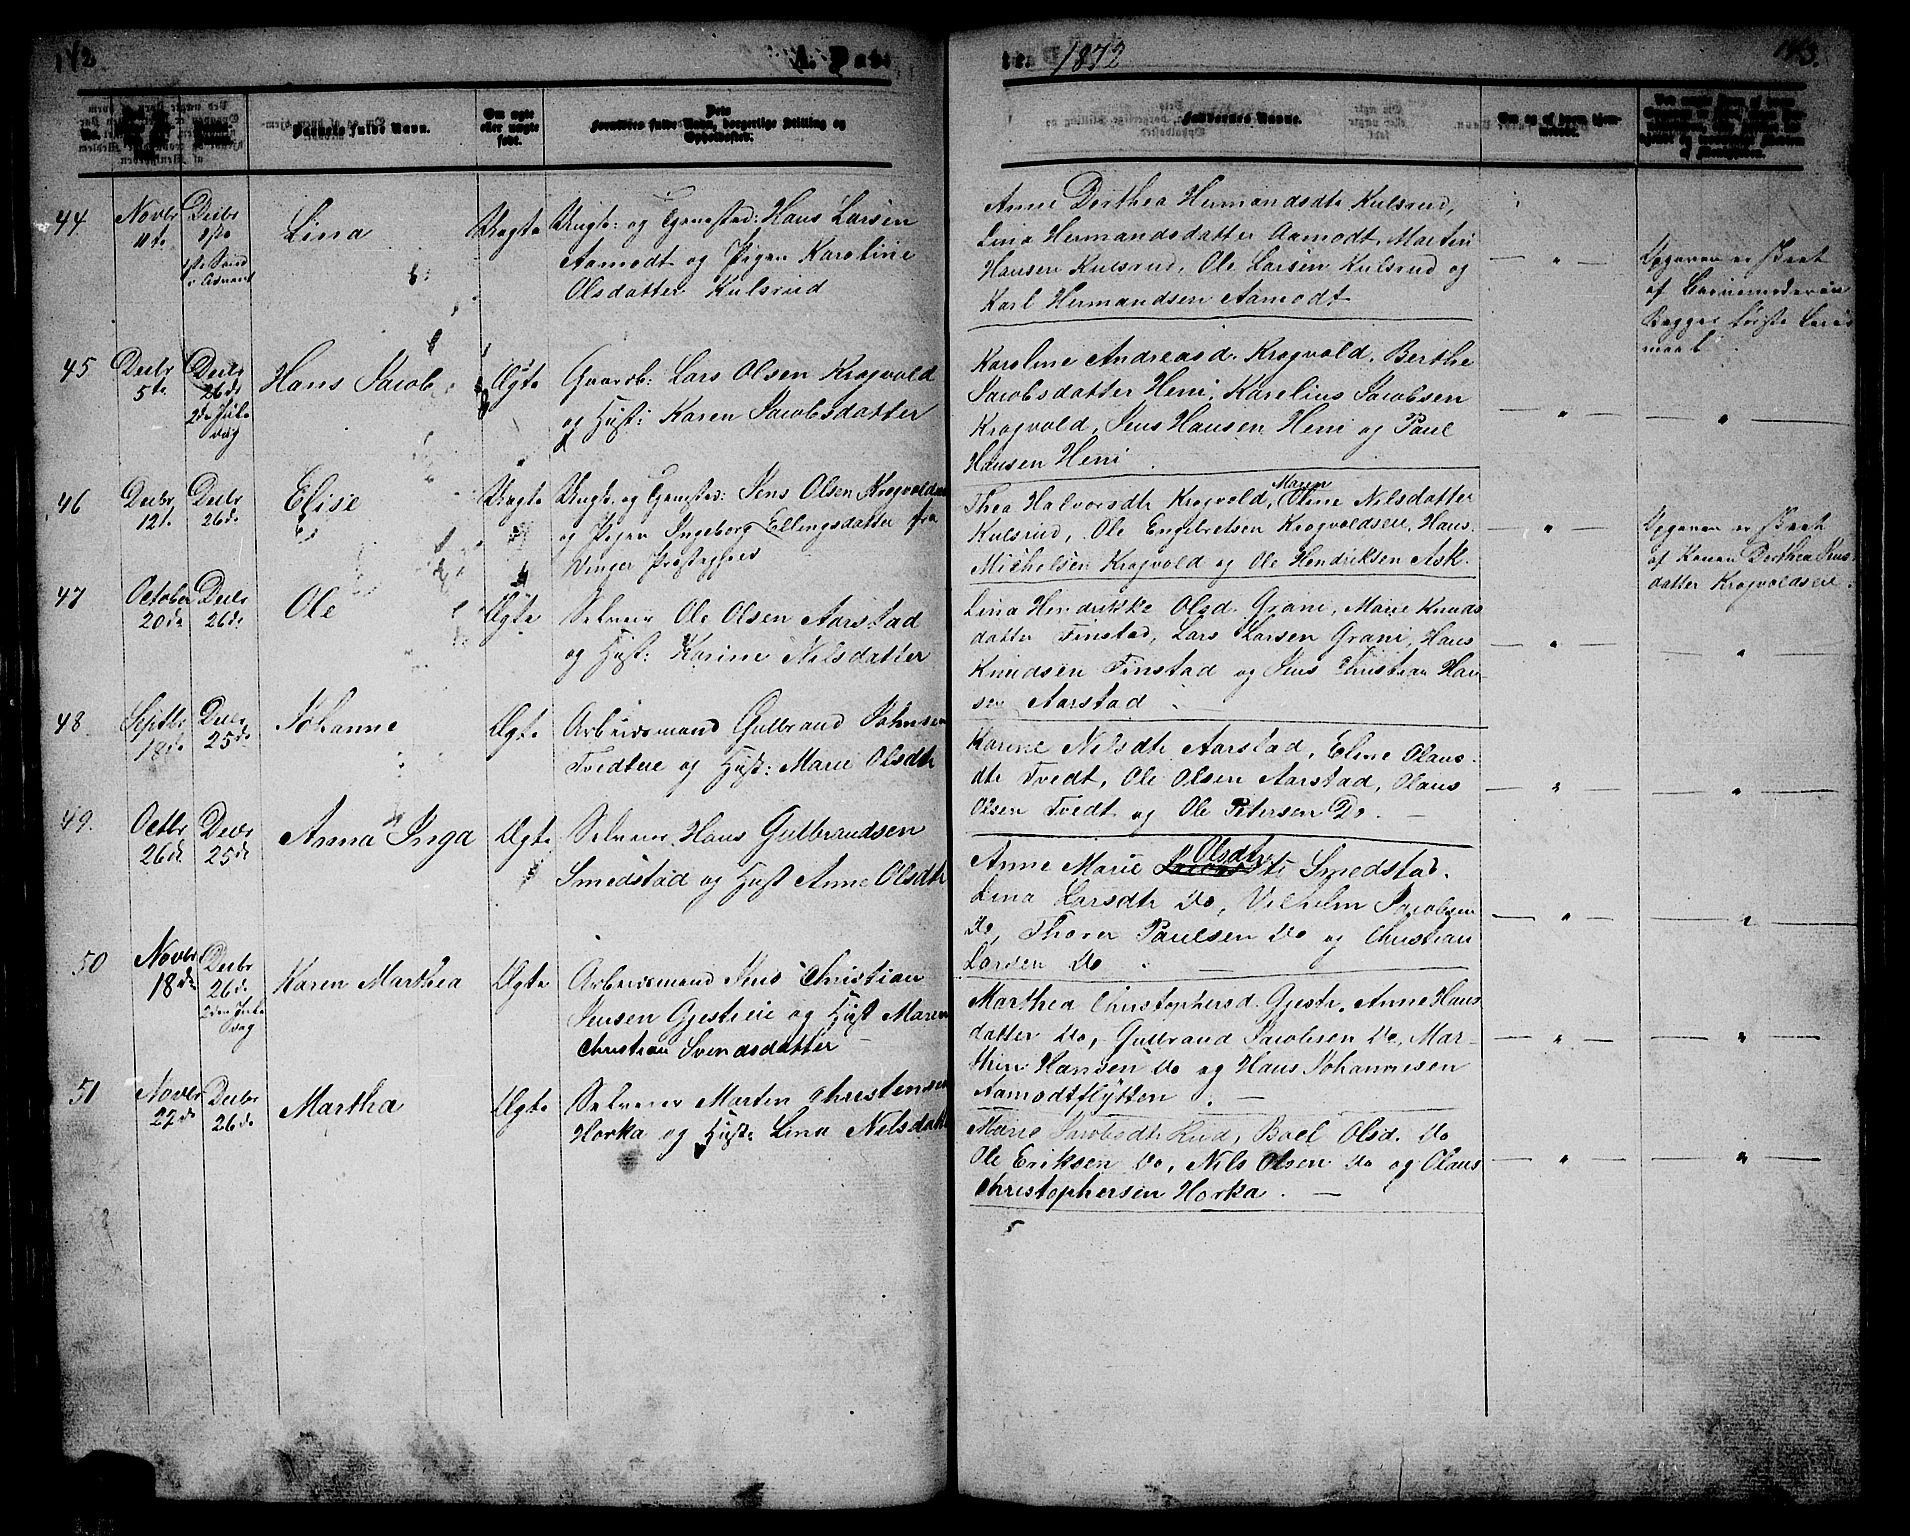 142
A. Dø
te. 1872
143.
No.
Barnets fulde Navn.
Om ægte
eller uægte
født.
Forældres fulde Navn, borgerlige Stilling og
Opholdssted.
Faddernes Navne.
Om og af hvem hjem-
medøbt.
44
Novbr
11te
Decbr
1ste
1ste Sønd
i Advent
Lina
Uægte
Ungk: og Tjenestad: Hans Larsen
Aamodt og Pigen Karoline
Olsdatter Kulsrud
Anne Dorthea Hermandsdtr Kulsrud,
Lina Hermandsdatter Aamodt, Martin
Hansen Kulsrud, Ole Larsen Kulsrud og
Karl Hermandsen Aamodt
— " —
Opgaven er skeet
af Barnemoderen
Begges første Leier
maal
45
Decbr
5te
Decbr
26de
2den Jule
dag
Hans Jacob
Ægte
Gaardb: Lars Olsen Krogvold
og Hust: Karen Jacobsdatter
Karoline Andreasd. Krogvold, Berthe
Jacobsdatter Heni, Karelius Jacobsen
Krogvold, Jens Hansen Heni og Paul
Hansen Heni
— " —
— " —
46
Decbr
12te
Decbr
26de
Elise
Uægte
Ungk. og Tjenestad: Jens Olsen Krogvoldeie
og Pigen Ingeborg Ellingsdatter fra
Vinger Præstegjeld
Thea Halvorsdtr Krogvold, Maren Oline Nilsdatter
Kulsrud, Ole Engebretsen Krogvoldseie, Hans
Michelsen Krogvold og Ole Hendriksen Ask.
— " —
Opgaven er skeet
af Konen Dorthea Jens
datter Krogvoldseie.
47
October
20de
Decbr
26de
Ole
Ægte
Selveier Ole Olsen Aarstad
og Hust: Karine Nilsdatter
Lina Hendrikke Olsd. Grani, Marie Knuds
datter Finstad, Lars Larsen Grani, Hans
Knudsen Finstad og Jens Christian Han-
sen Aarstad
— " —
"
48.
Septbr
18de
Decbr
25de
Johanne
Ægte
Arbeidsmand Gulbrand Johnsen
Tvedteie og Hust: Marie Olsdtr
Karine Nilsdtr Aarstad, Eline Olaus-
dtr Tvedt, Ole Olsen Aarstad, Olaus
Olsen Tvedt og Ole Petersen Do. —
— " —
— " —
49.
Octbr
26de
Decbr
25de
Anna Inga
Ægte
Selveier Hans Gulbrandsen
Smedstad og Hust Anne Olsdtr
Anne Marie Olsdtr Smedstad,
Lina Larsdtr Do, Vilhelm Jacobsen
Do, Thorer Paulsen Do og Christian
Larsen Do —
— " —
— " —
50
Novbr
18de
Decbr
26de
2den Jule
dag
Karen Marthea
Ægte
Arbeidsmand Jens Christian
Jensen Gjestreie og Hust Maren
Christian Svendsdatter —
Marthea Christophersd. Gjestr, Anne Hans
datter Do, Gulbrand Jacobsen Do, Mar-
thin Hansen Do og Hans Johannesen
Aamodtflytten . —
— " —
— " —
51
Novbr
27de
Decbr
26de
Martha
Ægte
Selveier Marten Christensen
Horka og Hust: Lina Nilsdatter
Marie Jacobsdtr Rud, Boel Olsd. Do
Ole Eriksen Do, Nils Olsen Do og Olaus
Christophersen Horka. —
— " —
— " —